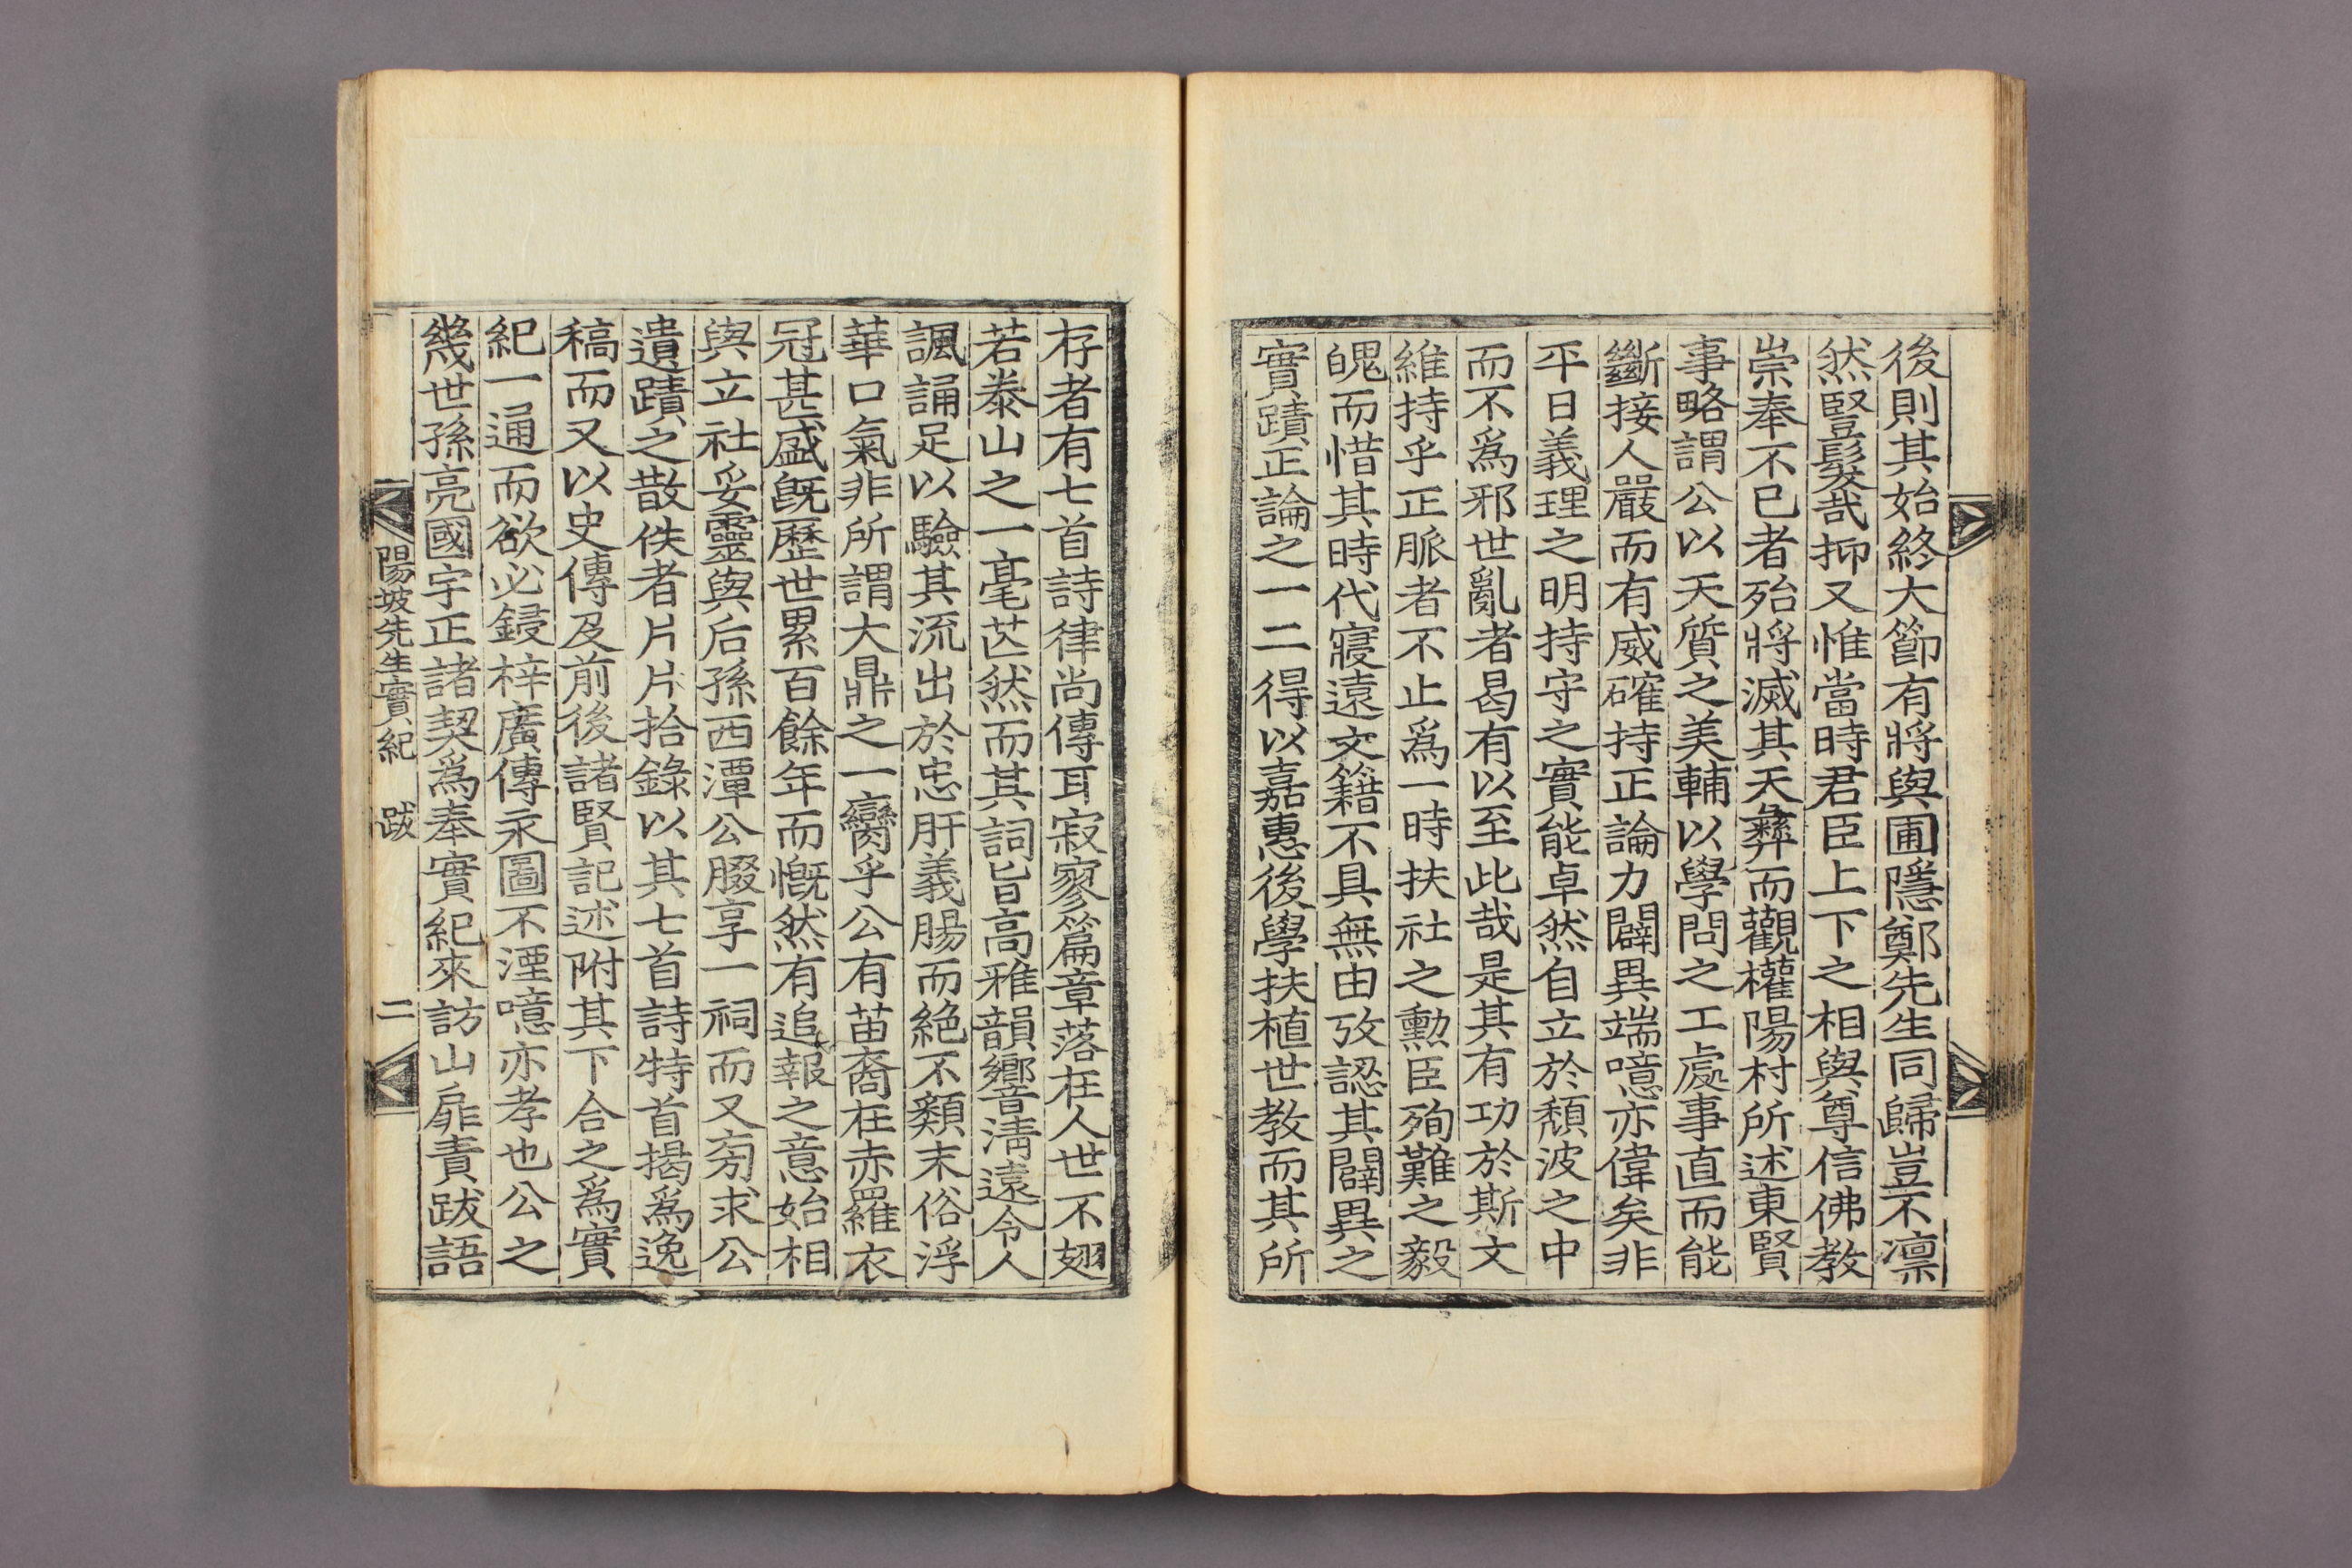 後則其始終大節有將與圃隱鄭先生同歸豈不凛
然豎髮哉抑又惟當時君臣上下之相與尊信佛教
崇奉不已者殆將滅其天彝而觀權陽村所述東賢
事略謂公以天質之美輔以學問之工處事直而能
斷接人嚴而有威確持正論力闢異端噫亦偉矣非
平日義理之明持守之實能卓然自立於頹波之中
而不爲邪世亂者曷有以至此哉是其有功於斯文
維持乎正脈者不止爲一時扶社之勳臣殉難之毅
魄而惜其時代寖遠文籍不具無由攷認其闢異之
實蹟正論之一二得以嘉惠後學扶植世教而其所
存者有七首詩律尚傳耳寂寥篇章落在人世不翅
若泰山之一毫芒然而其詞旨高雅韻響淸遠令人
諷誦足以驗其流出於忠肝義腸而絶不類末俗浮
華口氣非所謂大鼎之一臠乎公有苗裔在赤羅衣
冠甚盛旣歷世累百餘年而慨然有追報之意始相
與立社妥靈與后孫西潭公腏享一祠而又旁求公
遺蹟之散佚者片片拾錄以其七首詩特首揭爲逸
稿而又以史傳及前後諸賢記述附其下合之爲實
紀一通而欲必鋟梓廣傳永圖不湮噫亦孝也公之
幾世孫亮國宇正諸契爲奉實紀來訪山扉責跋語
陽坡先生實紀 跋 二